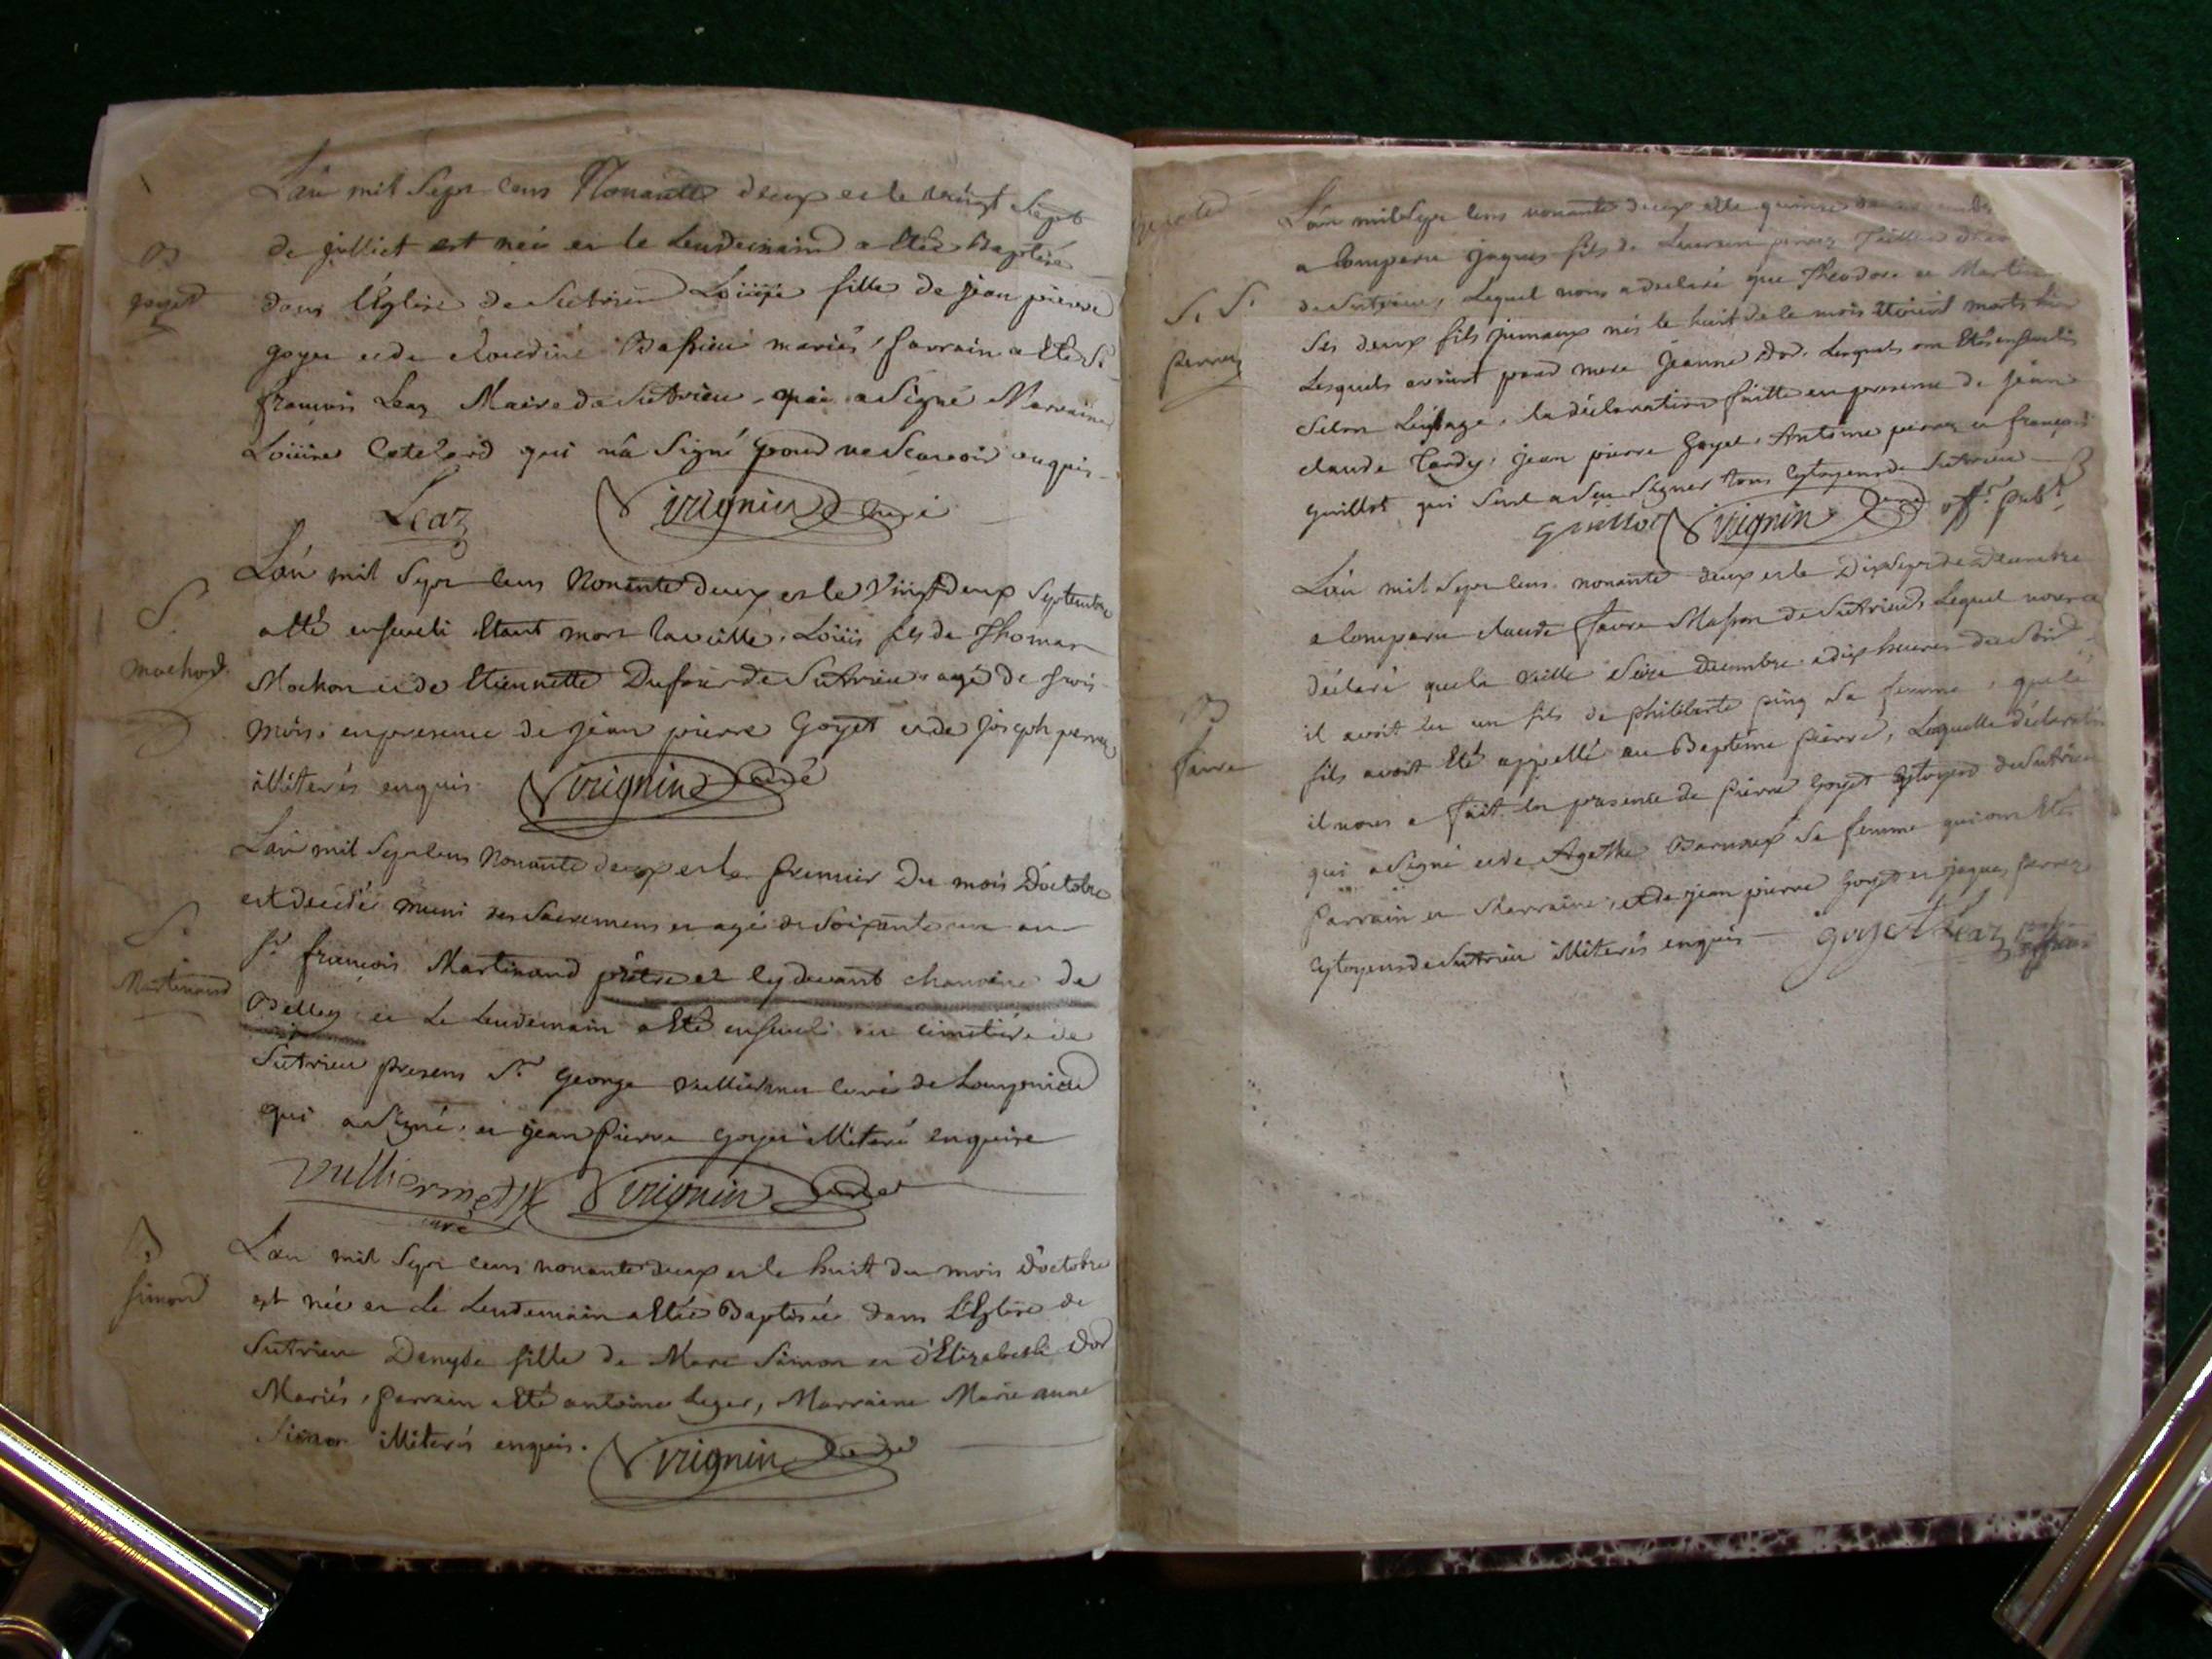 L'an mil Sept cens Nonante deux et le vingt Sept
B
goyet
de juilliet est neé et le lendemain a étée Baptisée
dans l'Eglise de Sutrieu Loüise fille de jean pierre
goyet et de claudine Bassieu mariés, parrain a été Sr.
françois Leaz Maire de Sutrieu, qui a signé Marraine
Loüise qui n'a signé pour ne scavoir enquis
Leaz Vrignin curé
S.
Mochon
L'an mil Sept cens Nonante deux et le vingt deux Septembre
a été enseveli étant mort la veille, Loüis fils de Thomas
Mochon et de Etiennette Dufour de Sutrieu agé de trois
mois, en presence de jean pierre Goyet et de joseph perret
illiterés enquis. Vrignin curé
S.
Martinand
L'an mil Sept cens Nonante deux et le premier Du mois D'octobre
est decédé muni des sacremens et agé de soixante un an
Sr. françois Martinand prêtre et cy devant chanoine de
Belley et le lendemain a été enseveli au cimetiere de
Sutrieu presens Sr. George vulliermet curé de Lompnieu
qui a signé, et jean Pierre goyet illiteré enquis
Vulliermet curé Vrignin curé
B
Simond
L'an mil Sept cens nonante deux et le huit du mois d'octobre
est née et le lendemain a étée Baptisée dans l'Eglise de
Sutrieu Denyse fille de Marc Simon et d'Elizabeth Dor
Mariés, parrain a été antoine Leger, Marraine Marie anne
Simon illiterés enquis. Vrignin curé
L'an mil Sept cens nonante deux et le quinze
S. S.
perret
a comparu jaques fils de
de Sutrieu, Lequel nous a declaré que Theodore et Martin
Ses deux fils jumaux nés le huit de ce mois étoient morts hier
Lesquels avoient pour mere Jeanne Dor. Lesquels ont été ensevelis
Selon L'usage, la déclaration faitte en presence de jean
claude Tardy, jean pierre Goyet, Antoine perret et françois
guillot qui seul a seu signer tous cytoyens de Sutrieu
guillot Vrignin curé off.r pub.c
B
favre
L'an mil Sept cens nonante deux et le Dix Sept de Decembre
a comparu claude favre Masson de Sutrieu, Lequel nous a
déclaré que la veille Seize decembre a dix heures du Soir
il avoit eu un fils de philiberte sa femme, que le
fils avoit été appellé au Baptême pierre, Laquelle déclaration
il nous a fait en presence de pierre Goyet cytoyen de Sutrieu
qui a signé et de Agathe sa femme qui ont été
parrain et Marraine, et de jean pierre Goyet et jaques perret
cytoyens de Sutrieu illiterés enquis goyet Leaz